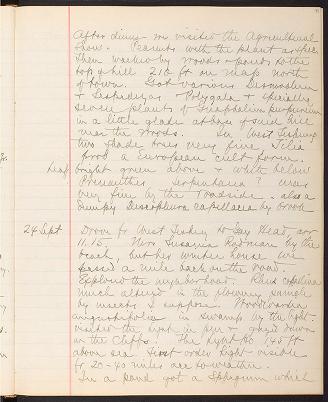 After dinner we visited the Agricultural
Show. Peanuts with the plant
then walked by woods & ponds to the
top of hill 210 ft on map north
of town. Got various Desmodium
& Lespedezas Polygala & specially
seven plants of Gnaphalium purpureum
in a little glade at base of said hill
near the woods. In West Tisbury
two shade trees very fine, Tilia
prob a European cult form.
leaf bright green above & white below
Prenanthes serpentaria? was
very fine by the roadside. also a
Discopleura capillacea by brook
24 Sept Drove to West Tisbury & Gay Head, arr
11.15. Mrs Susanna Rodman by the
beach, but her winter house we
passed a mile back on the road.
Explored the neighborhood. Rhus copallina
much altered in the flowering panicle
by insects I suppose. Woodwardia
angustifolia in swamp by the light.
visited the light in pm & down
on the Cliffs. The light is 145 ft
above sea. First order light visible
fr 20-40 miles acc to weather.
In a pond got a Sphagnum which